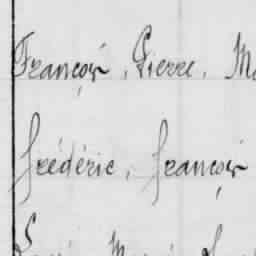 François, Pierre, M
frédéric, françois